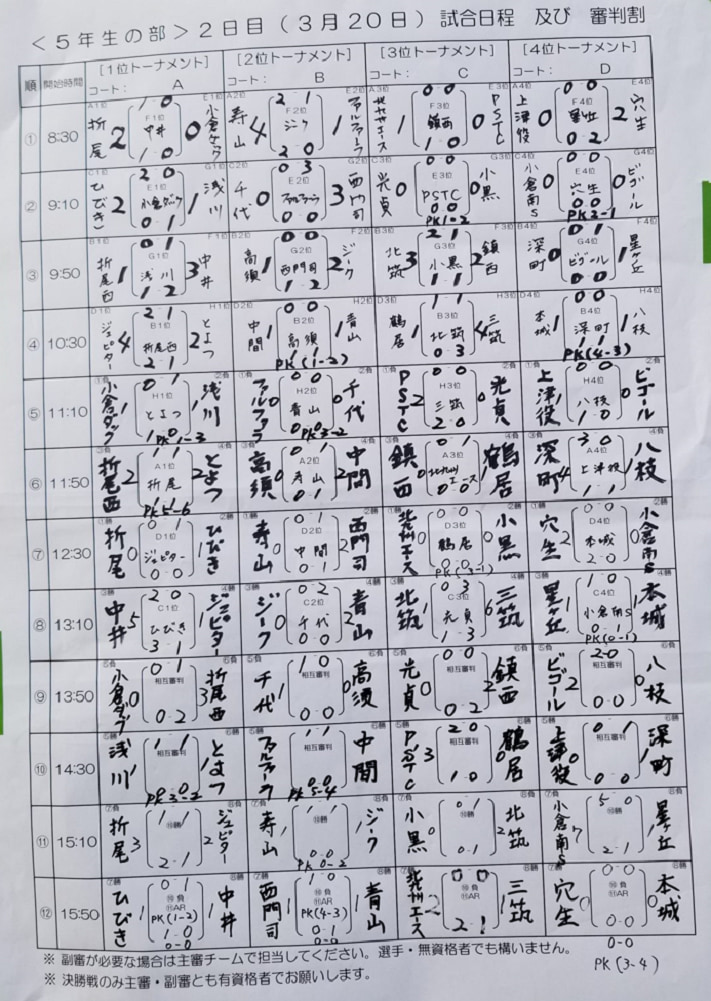 ＜５年生の部＞２日目（３月２０日）試合日程 及び 審判割
順 開始時間 [１位トーナメント] コート： A [２位トーナメント] コート： B [３位トーナメント] コート： C [４位トーナメント] コート： D
① 8:30
A1位 折尾 2 1 0 F1位 中井 1 0 0 E1位
A2位 寿山 4 2 1 F2位 ジーク 2 0 1 E2位
A3位 1 0 0 F3位 鎮西 1 0 0 PSTC E3位
A4位 上津役 0 0 0 F4位 0 2 2 穴生 E4位
② 9:10
C1位 ひびき 2 2 0 E1位 小倉ダック 0 1 1 浅川 G1位
C2位 千代 0 0 3 E2位 0 0 3 西門司 G2位
C3位 光貞 0 0 0 E3位 PSTC 0 0 PK1-2 0 小黒 G3位
C4位 小倉南S 0 0 0 E4位 穴生 0 0 PK3-1 0 ビゴール G4位
③ 9:50
B1位 折尾西 1 0 1 G1位 浅川 1 2 3 中井 F1位
B2位 高須 1 0 0 G2位 西門司 1 2 2 ジーク F2位
B3位 北筑 3 2 1 G3位 小黒 1 1 2 鎮西 F3位
B4位 深町 0 0 1 G4位 ビゴール 0 0 1 星ヶ丘 F4位
④ 10:30
D1位 ジュピター 4 2 1 B1位 折尾西 2 1 2 とよつ H1位
D2位 中間 1 0 0 B2位 高須 1 1 PK(1-2) 1 青山 H2位
D3位 鶴居 1 1 1 B3位 北筑 0 3 4 三筑 H3位
D4位 本城 1 0 0 B4位 深町 1 1 PK(4-3) 1 八枝 H4位
⑤ 11:10
小倉ダック 1 0 1 H1位 とよつ 1 0 PK1-3 1 浅川
0 0 H2位 青山 0 0 PK3-2 0 千代
PSTC 2 0 0 H3位 三筑 2 0 0 光貞
上津役 1 0 0 H4位 八枝 1 0 0 ビゴール
⑥ 11:50
折尾西 2 A1位 折尾 1 1 PK5-6 2 とよつ
高須 0 0 1 A2位 寿山 0 1 2 中間
鎮西 0 0 1 A3位 北九州エース 0 0 1 鶴居
深町 4 3 0 A4位 上津役 1 1 1 八枝
⑦ 12:30
折尾 0 0 1 D1位 ジュピター 0 0 1 ひびき
寿山 0 1 D2位 中間 0 1 2 西門司
北九州エース 0 0 0 D3位 鶴居 0 0 PK(3-1) 0 小黒
穴生 2 0 0 D4位 本城 2 0 0 小倉南S
⑧ 13:10
中井 5 2 0 C1位 ひびき 3 1 1 ジュピター
ジーク 0 0 2 C2位 千代 0 0 2 青山
北筑 1 0 3 C3位 光貞 1 3 6 三筑
星ヶ丘 1 1 0 C4位 小倉南S 0 1 PK(0-1) 1 本城
⑨ 13:50
小倉ダック 0 0 1 相互審判 0 2 3 折尾西
千代 1 1 0 相互審判 0 0 0 高須
光貞 0 0 0 相互審判 0 2 2 鎮西
ビゴール 2 2 0 相互審判 0 0 0 八枝
⑩ 14:30
浅川 1 1 1 相互審判 0 0 PK3-2 1 とよつ
1 1 1 相互審判 0 0 PK5-4 1 中間
PSTC 3 2 0 相互審判 1 0 0 鶴居
上津役 0 0 1 相互審判 0 0 1 深町
⑪ 15:10
折尾 3 1 1 ⑩勝 2-1 2 ジュピター
寿山 1 1 1 ⑩勝 0 0 PK 0-2 1 ジーク
小黒 0 0 1 ⑩勝 0 1 2 北筑
小倉南S 7 5 0 ⑩勝 2-1 1 星ヶ丘
⑫ 15:50
ひびき 1 0 1 ⑩負 ⑪AR PK(1-2) 1 0 0-0 1 中井
西門司 1 1 0 ⑩負 ⑪AR PK(4-3) 0 1 0-0 1 青山
北九州エース 2 0 0 ⑩負 ⑪AR 2-1 1 三筑
穴生 0 0 0 ⑩負 ⑪AR 0-0 0 本城
0-0
PK (3-4)
※ 副審が必要な場合は主審チームで担当してください。選手・無資格者でも構いません。
※ 決勝戦のみ主審・副審とも有資格者でお願いします。